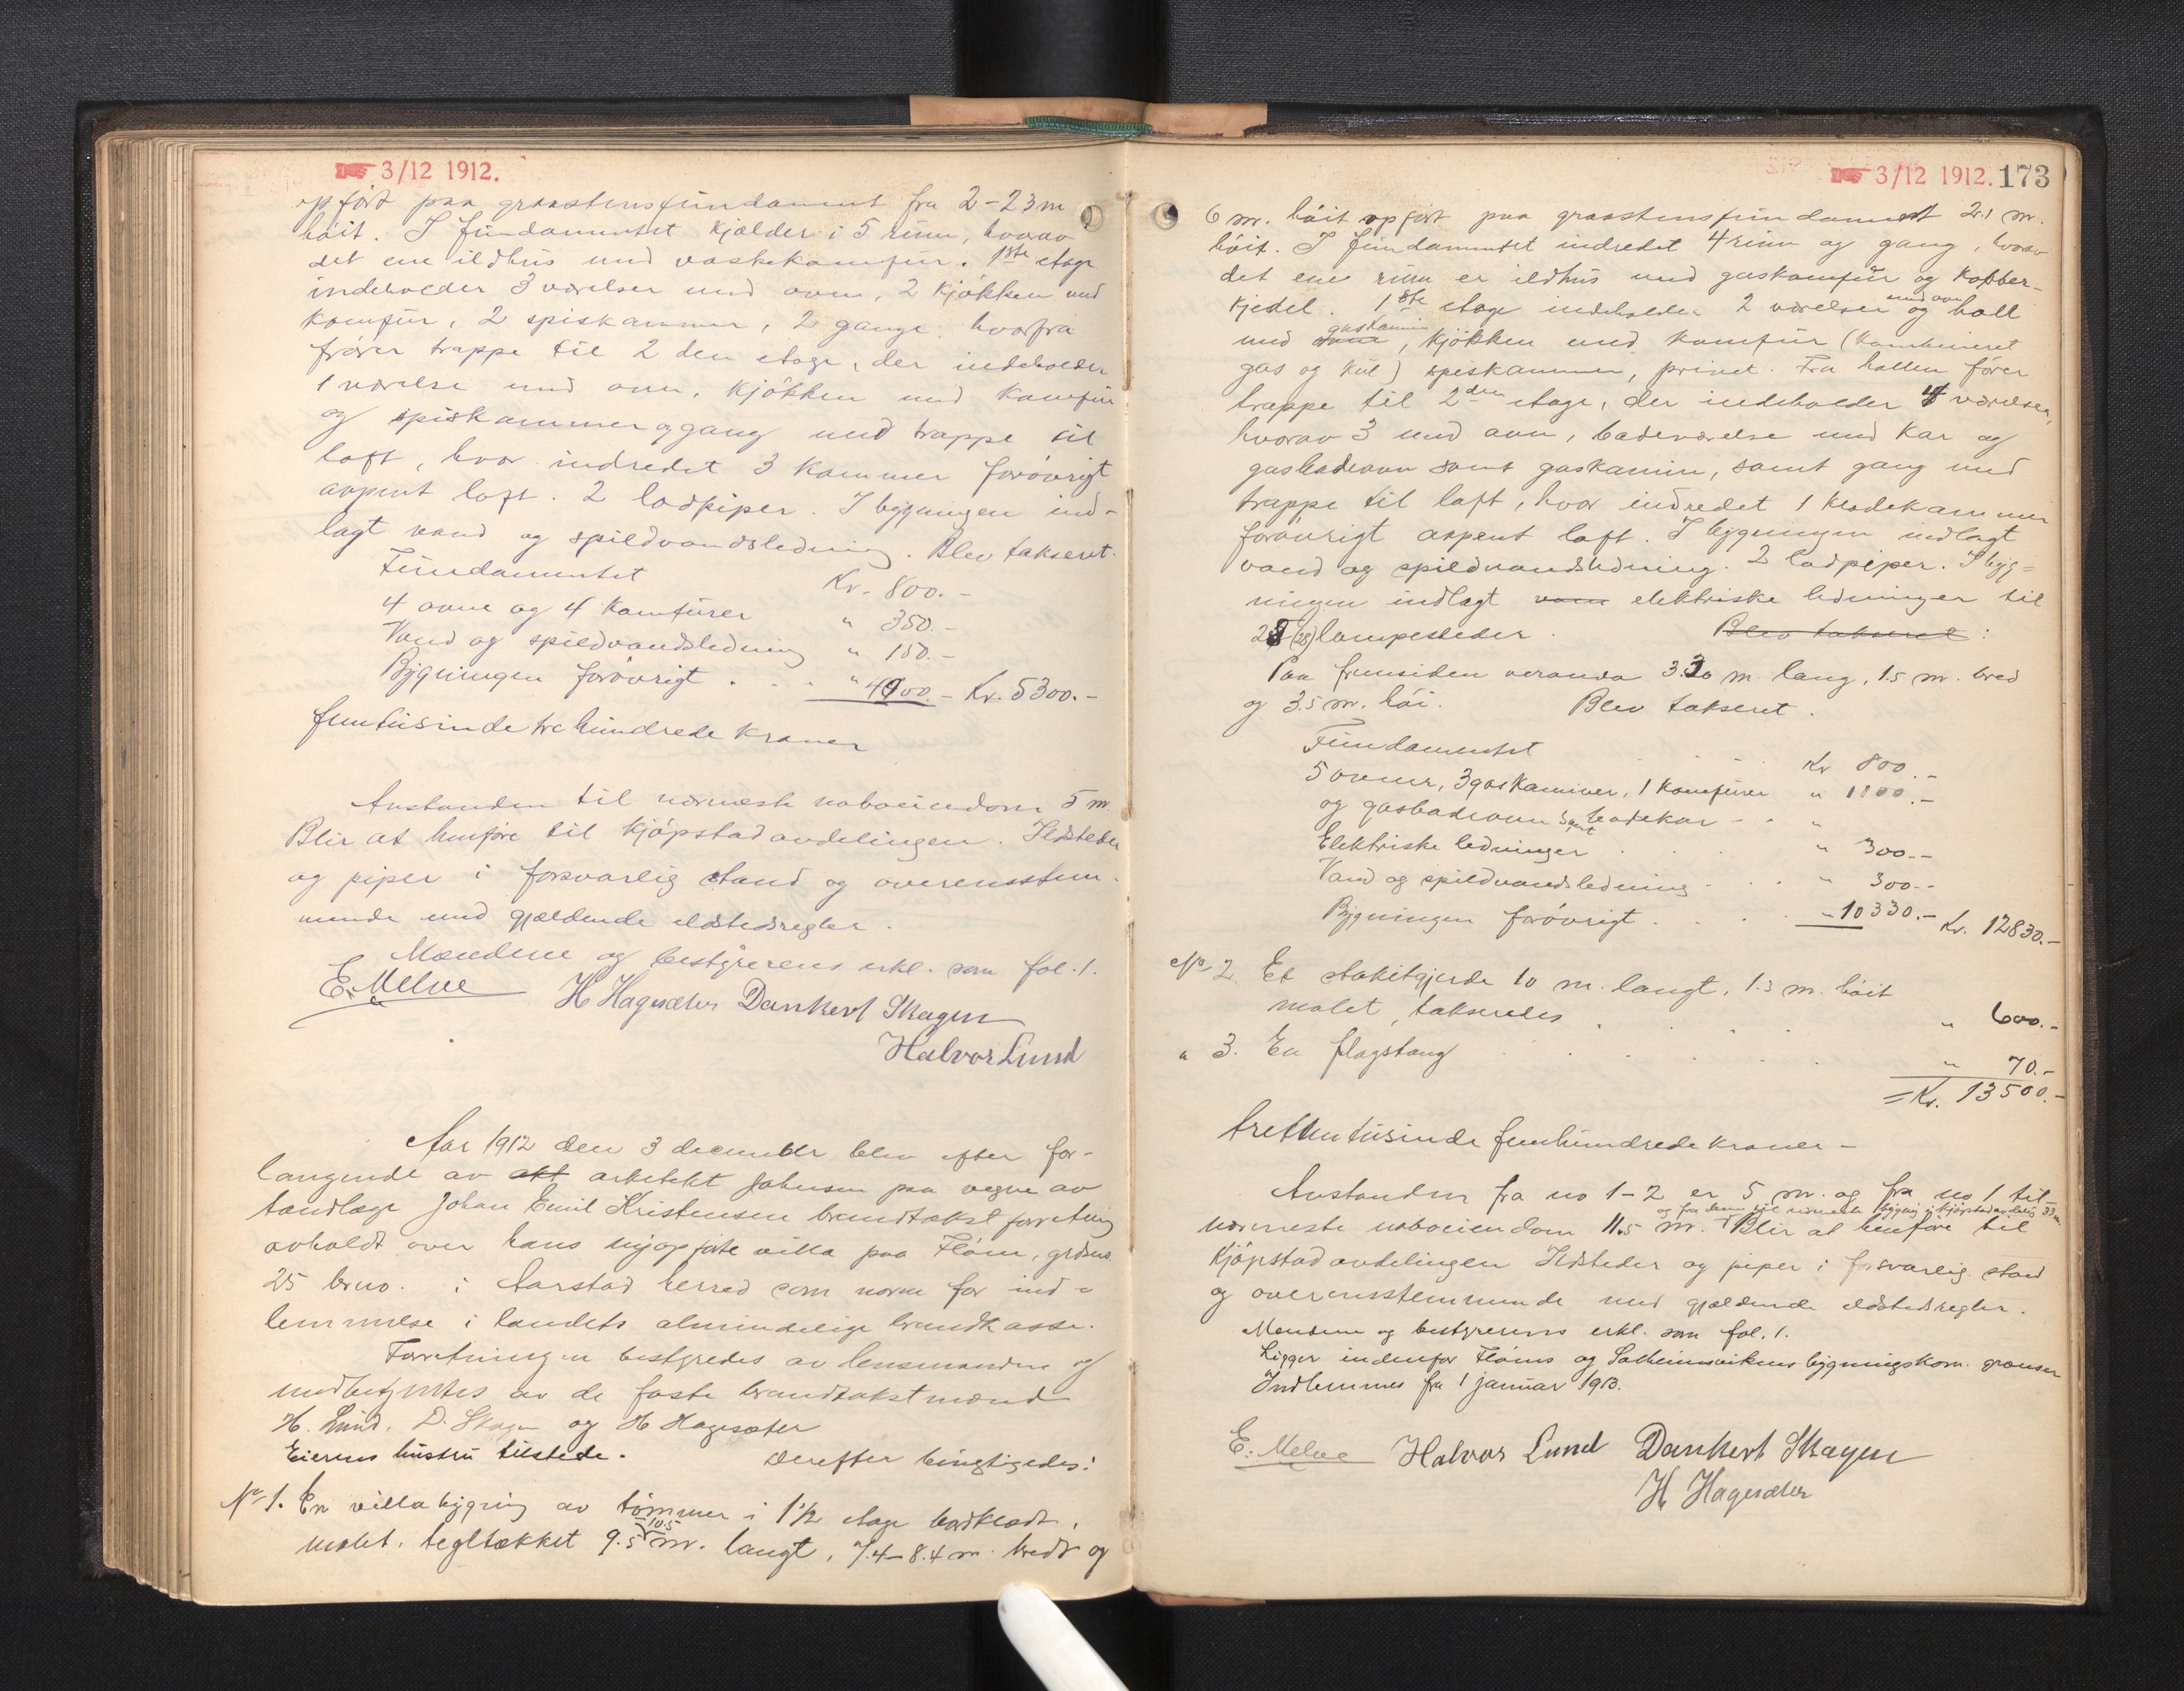 3/12 1912.
opført paa graastensfundament fra 2-2.3 m
höit. I fundamentet kjælder i 5 rum, hvorav
det ene ildhus med vaskekomfur. 1ste etage
indeholder 3 værelser med ovn, 2 kjökken med
komfur, 2 spiskammer, 2 gange hvorfra
förer trappe til 2 den etage, der indeholder
1 værelse med ovn, kjökken med komfur
og spiskammer og gang med trappe til
loft, hvor indredet 3 kammer forövrigt
aapent loft. 2 lodpiper. I bygningen ind-
lagt vand og spildvandsledning. Blev takseret.
Fundamentet Kr. 800.-
4 ovne og 4 komfurer " 350.-
Vand og spildvandsledning " 150.-
Bygningen forövrigt . . . " 4000.- Kr. 5300.-
femtusinde tre hundrede kroner
Avstanden til nærmeste naboeiendom 5 m.
Blir at henføre til kjöpstadavdelingen. Ildsteder
og piper i forsvarlig stand og overensstem-
mende med gjældende ildstedsregler.
Mændene og bestyrerens erkl. som fol. 1.
E. Melve H Hagesæter Dankert Skagen
Halvor Lund
Aar 1912 den 3 december blev efter for-
langende av akt arkitekt Johnsen paa vegne av
tandlæge Johan Emil Kristensen brandtakst forretning
avholdt over hans nyopførte villa paa Fløen, grdsno.
25 brno. i Aarstad herred som norm for ind-
lemmelse i landets almindelige brandkasse.
Forretningen bestyredes av lensmanden og
medbetjentes av de faste brandtakstmænd
H. Lund, D. Skagen og H Hagesæter
Eierens hustru tilstede. Derefter besigtigedes:
No 1. En villabygning av tömmer i 1 1/2 etage bordklædt,
malet, tegltækket 9.5 10.5 m. langt, 7.4-8.4 m. bredt og
3/12 1912. 173
6 m. höit opfört paa graastensfundament 2.1 m.
höit. I fundamentet indredet 4 rum og gang, hvorav
det ene rum er ildhus med gaskomfur og kobber-
kjedel. 1ste etage indeholder 2 værelser med ovn og hall
med ovne gaskamin, kjökken med komfur (kombineret
gas og kul) spiskammer, privet. Fra hallen förer
trappe til 2den etage, der indeholder 4 værelser,
hvorav 3 med ovn, badeværelse med kar og
gasbadeovn samt gaskamin, samt gang med
trappe til loft, hvor indredet 1 klædekammer
forövrigt aapent loft. I bygningen indlagt
vand og spildvandsledning. 2 lodpiper. I byg=
ningen indlagt vand elektriske ledninger til
28 (28) lampesteder. Blev takseret:
Paa fremsiden veranda 3.30 m lang, 1.5 m. bred
og 3.5 m. höi. Blev takseret.
Fundamentet . . . Kr 800.-
5 ovner, 3 gaskaminer, 1 komfurer " 1100.-
og gasbadeovn samt badekar - - "
Elektriske ledninger . . . " 300.-
Vand og spildvandsledning . . . " 300.-
Bygningen forövrigt . . . . " 10330.- Kr. 12830.-
No 2. Et stakitgjerde 10 m. langt, 1.3 m. höit
malet, takseredes . . . . " 600.-
" 3. En flagstang . . . . . " 70.-
= Kr. 13500.-
trettentusinde femhundrede kroner -
Avstanden fra no 1-2 er 5 m. og fra no 1 til
og fra denne til nærmeste bygning i kjöpstadavdeling 33 m.
nærmeste naboeiendom 11.5 m. Blir at henføre til
Kjöpstadavdelingen Ildsteder og piper i forsvarlig stand
og overensstemmende med gjældende ildstedsregler.
Mændene og bestyrerens erkl. som fol. 1.
Ligger indenfor Fløens og Solheimsvikens bygningskom. grænser
Indlemmes fra 1 januar 1913.
E. Melve Halvor Lund Dankert Skagen
H Hagesæter